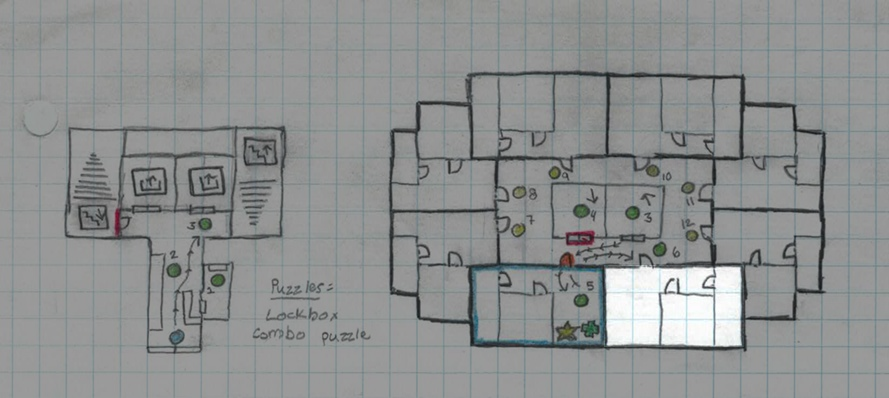 2
3
1
Puzzles:
Lockbox
Combo puzzle
9
10
8
11
4
3
7
12
6
5